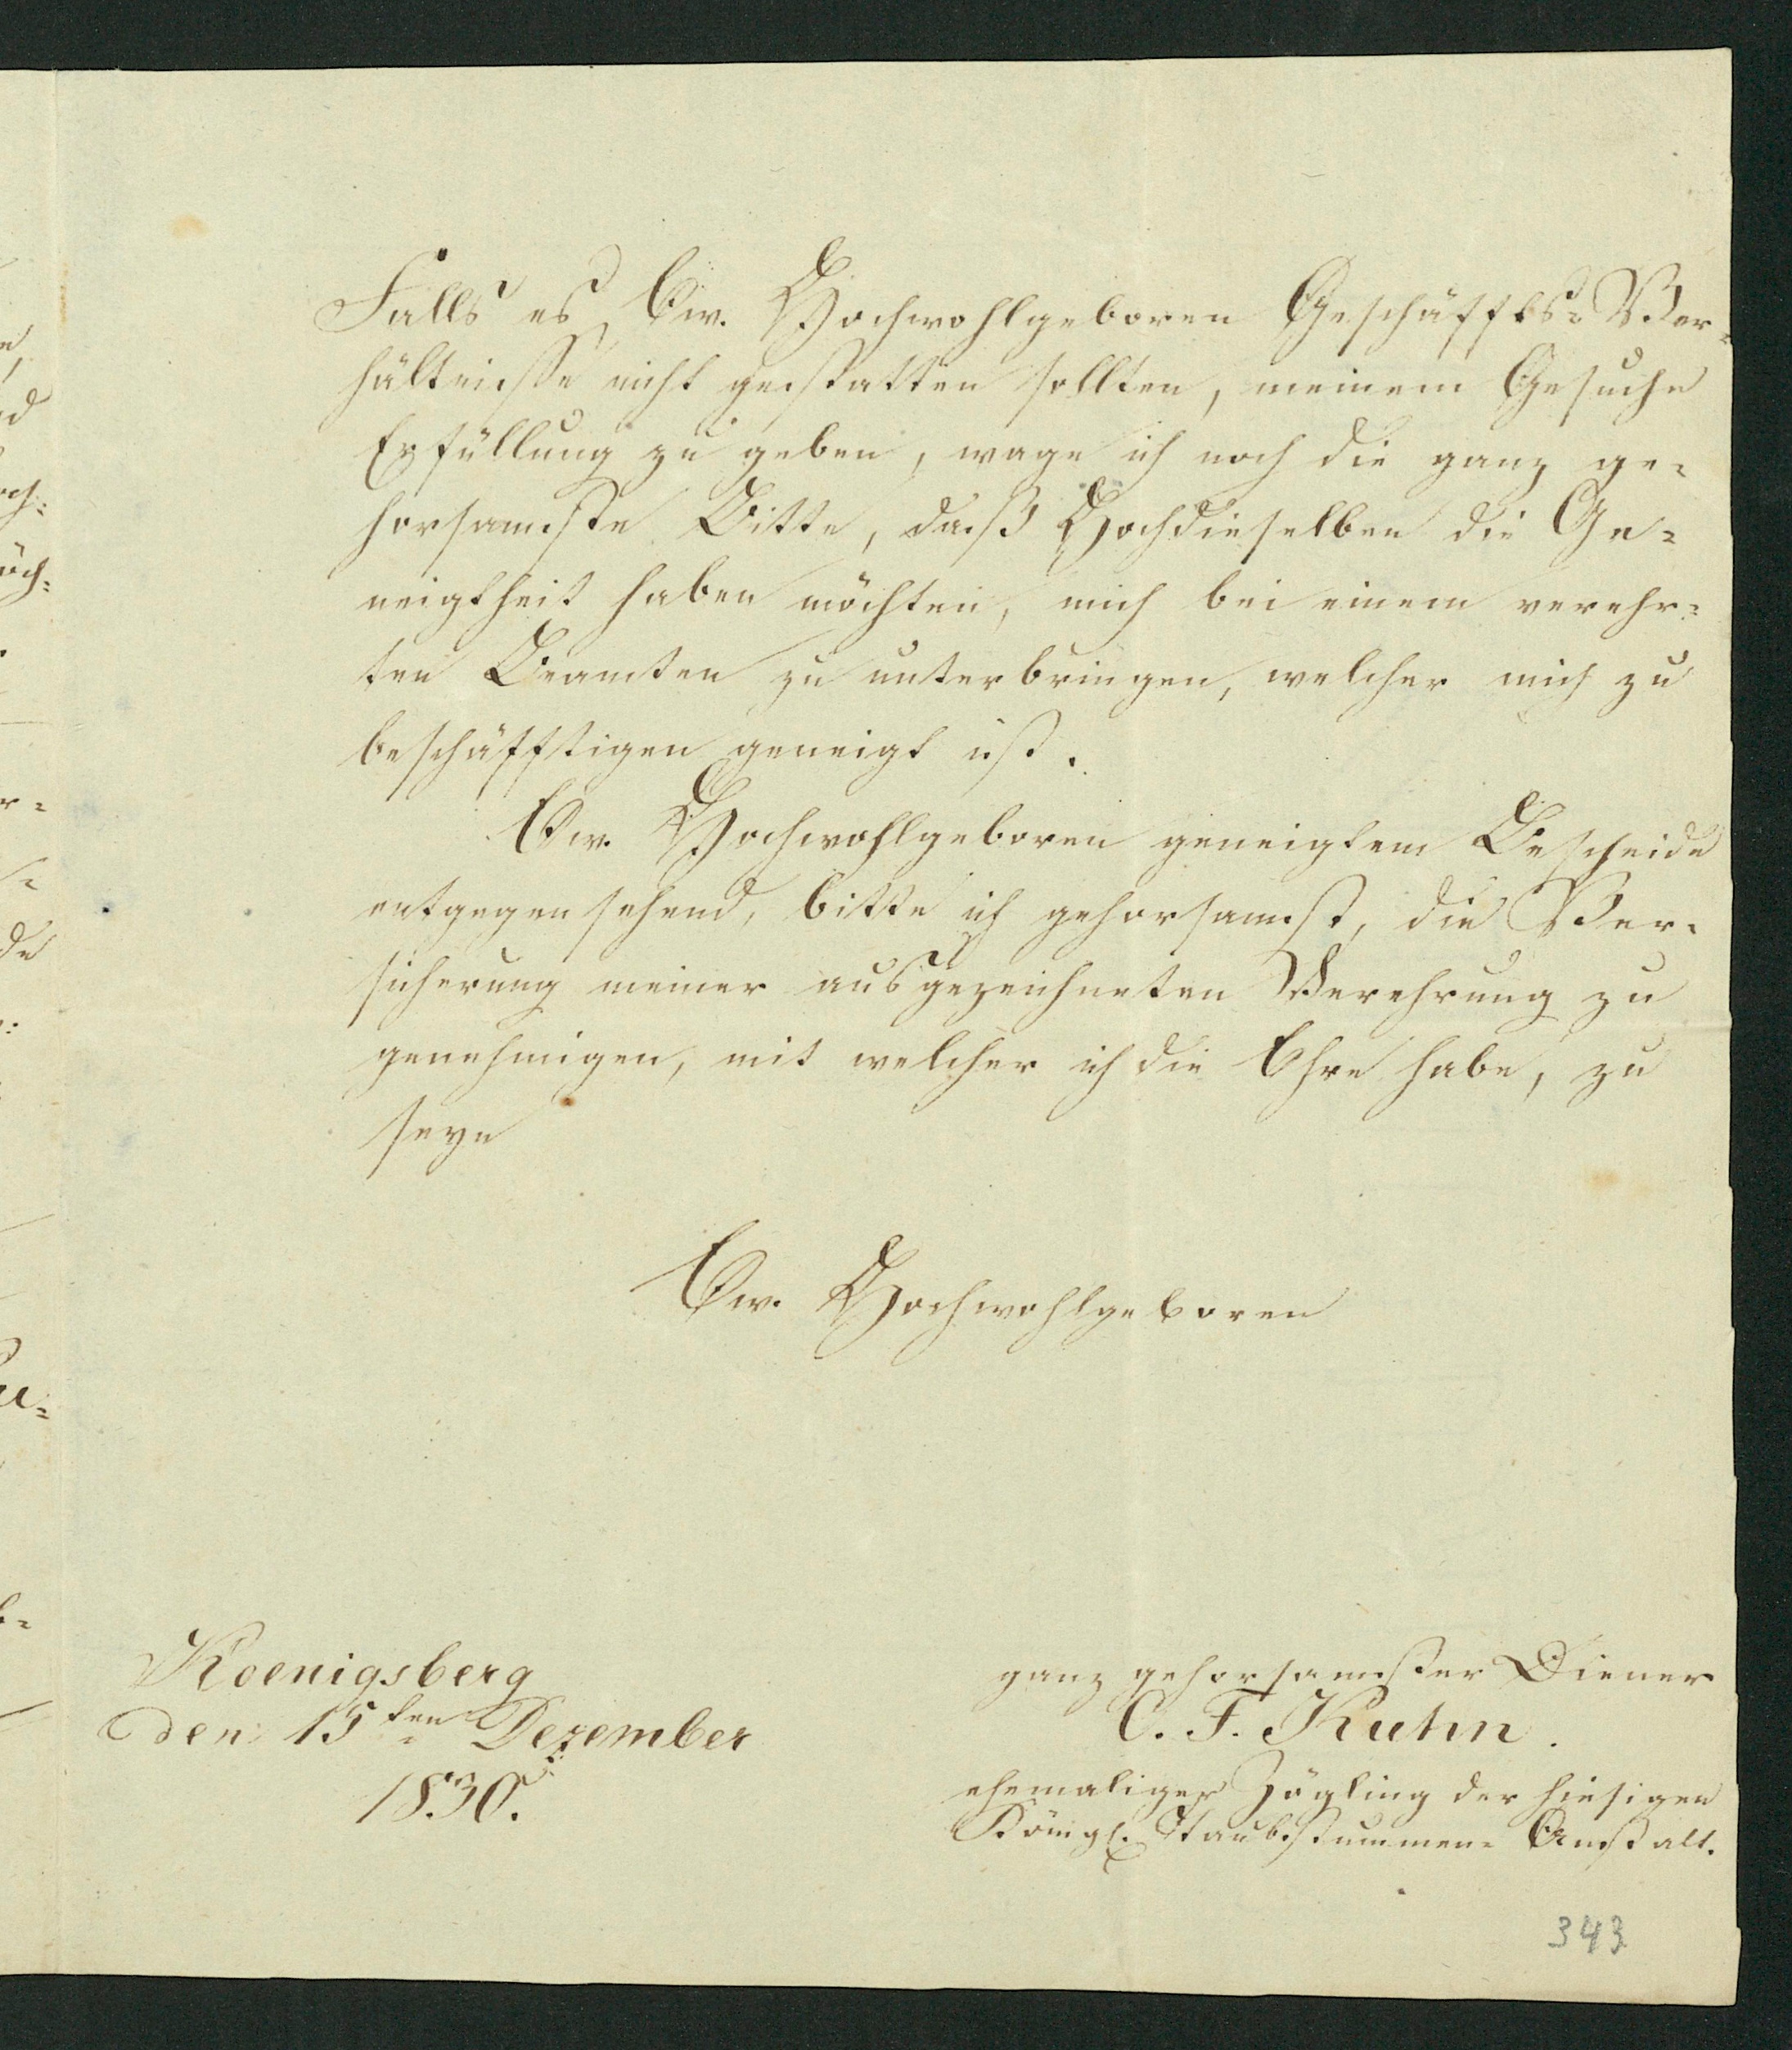 Falls es, Ew. Hochwohlgeboren Geschäffts-Ver-
hältnisse nicht gestatten sollten, meinem Gesuche
Erfüllung zu geben, wage ich noch die ganz ge-
horsamste Bitte, daß Hochdieselben die Ge-
neigtheit haben möchten, mich bei einem verehr-
ten Beamten zu unterbringen, welcher mich zu
beschäfftigen geneigt ist.
Ew. Hochwohlgeboren geneigtem Bescheide
entgegen sehend, bitte ich gehorsamst, die Ver-
sicherung meiner ausgezeichneten Verehrung zu
genehmigen, mit welcher ich die Ehre habe, zu
seyn
Ew. Hochwohlgeboren
Koenigsberg
den 15ten Dezember
1830.
ganz gehorsamster Diener
C. F. Kuhn.
ehemaliger Zögling der hiesigen
Königl. Taubstummen-Anstalt.
343